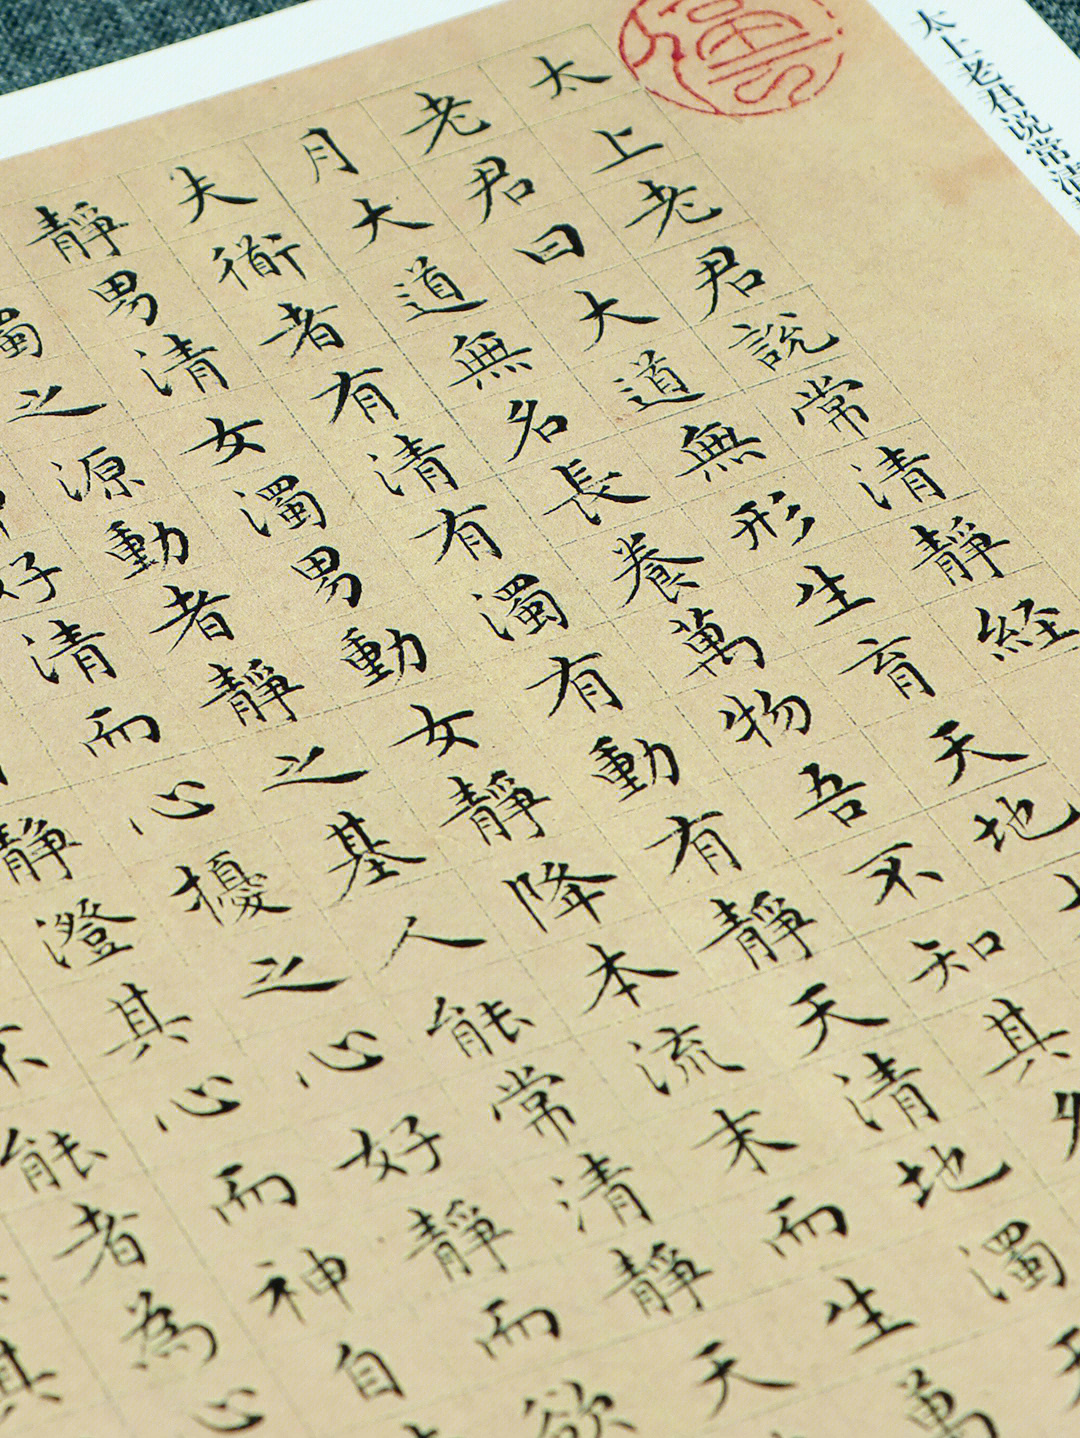 太上老君说常清
太上老君說常清靜経
老君曰大道無形生育天地
月大道無名長養萬物吾不知其名
夫衜者有清有濁有動有靜天清地濁天
靜男清女濁男動女靜降本流末而生萬
濁之源動者靜之基人能常清靜天
好清而心擾之心好靜而欲
靜澄其心而神自
能者為心
其